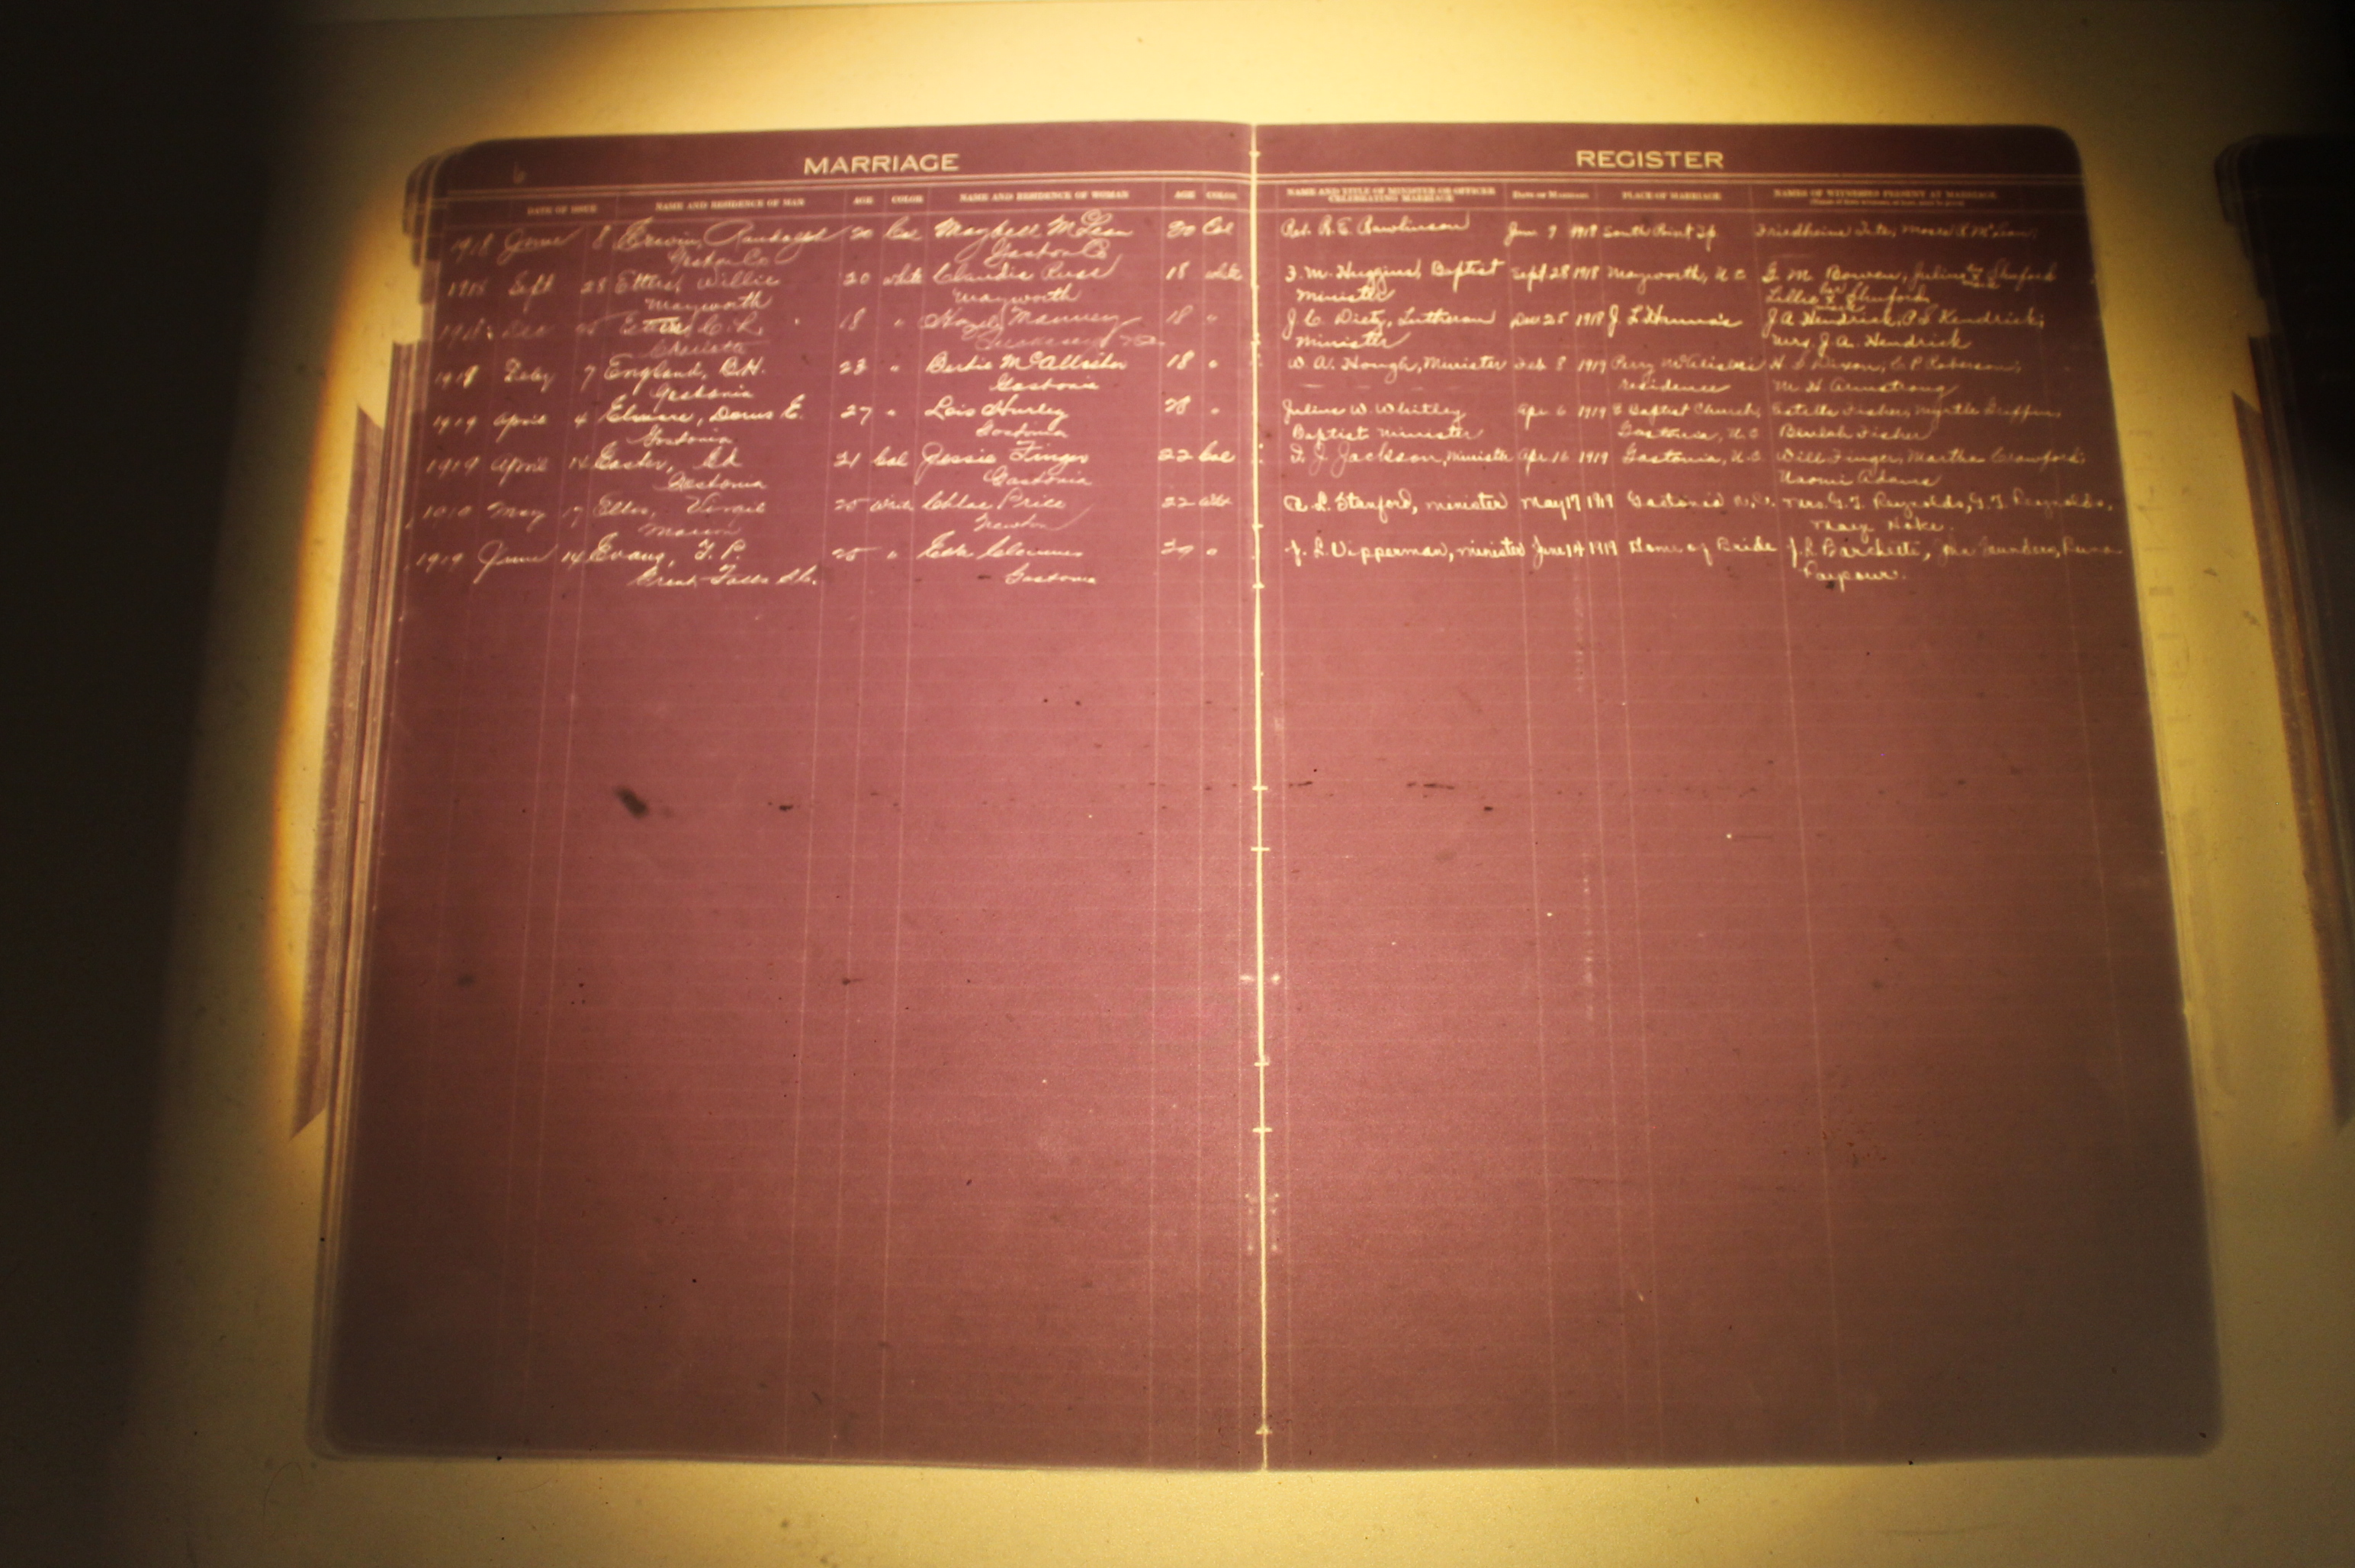 6
MARRIAGE
REGISTER
DATE OF ISSUE NAME AND RESIDENCE OF MAN AGE COLOR NAME AND RESIDENCE OF WOMAN AGE COLOR NAME AND TITLE OF MINISTER OR OFFICER CELEBRATING MARRIAGE PLACE OF MARRIAGE NAMES OF WITNESSES PRESENT AT MARRIAGE
1918 June 8 Erwin, Randolph 20 Col Maybell McLean 20 Col Rev. R. E. Rawlinson June 9 1918 South Point Tp Moses R McLean,
Gaston Co Gaston Co
1918 Sept 28 Etters, Willie 20 white Claudie 18 white F. M. Huggins, Baptist Sept 28 1918 Mayworth, N.C G. M. Bowen, Julius Shuford
Mayworth Mayworth Minister Lillie Shuford
1918 Dec 25 C. L. 18 " Hazel 18 " J. C. Dietz, Lutheran Dec 25 1918 J. L. J A Hendrick, P S Kendrick,
Charlotte Minister Mrs. J. A. Hendrick
1918 Feby 7 England, B.H. 23 " Bertie McAllister 18 " W. A. Hough, Minister Feb 8 1919 Perry H S Dixon, C P Roberson,
Gastonia Gastonia residence M. H. Armstrong
1919 April 4 Elmore, E. 27 " Lois Hurley 28 " Julius W. Whitley Apr. 6 1919 Baptist Church, Estelle Fisher, Myrtle Griffin,
Gastonia Gastonia Baptist Minister Gastonia, N.C Beulah Fisher
1919 April 14 Easter, Ed 21 Col Jessie Finger 22 Col J. Jackson, Minister Apr. 16 1919 Gastonia, N.C Will Finger, Martha Crawford,
Gastonia Gastonia Naomi Adams
May 17 Virgil 25 White Chloe Price 22 White A. L. Stanford, minister May 17 1919 Gastonia N.C. Mrs. G. F. Reynolds, G. F. Reynolds,
Marion Newton Mary Hoke.
1919 June 14 Evans, T. P. 25 " 29 " J. L. Vipperman, minister June 14 1919 Home of Bride J. L. Saunders,
Great Falls S.C. Gastonia Raypour.